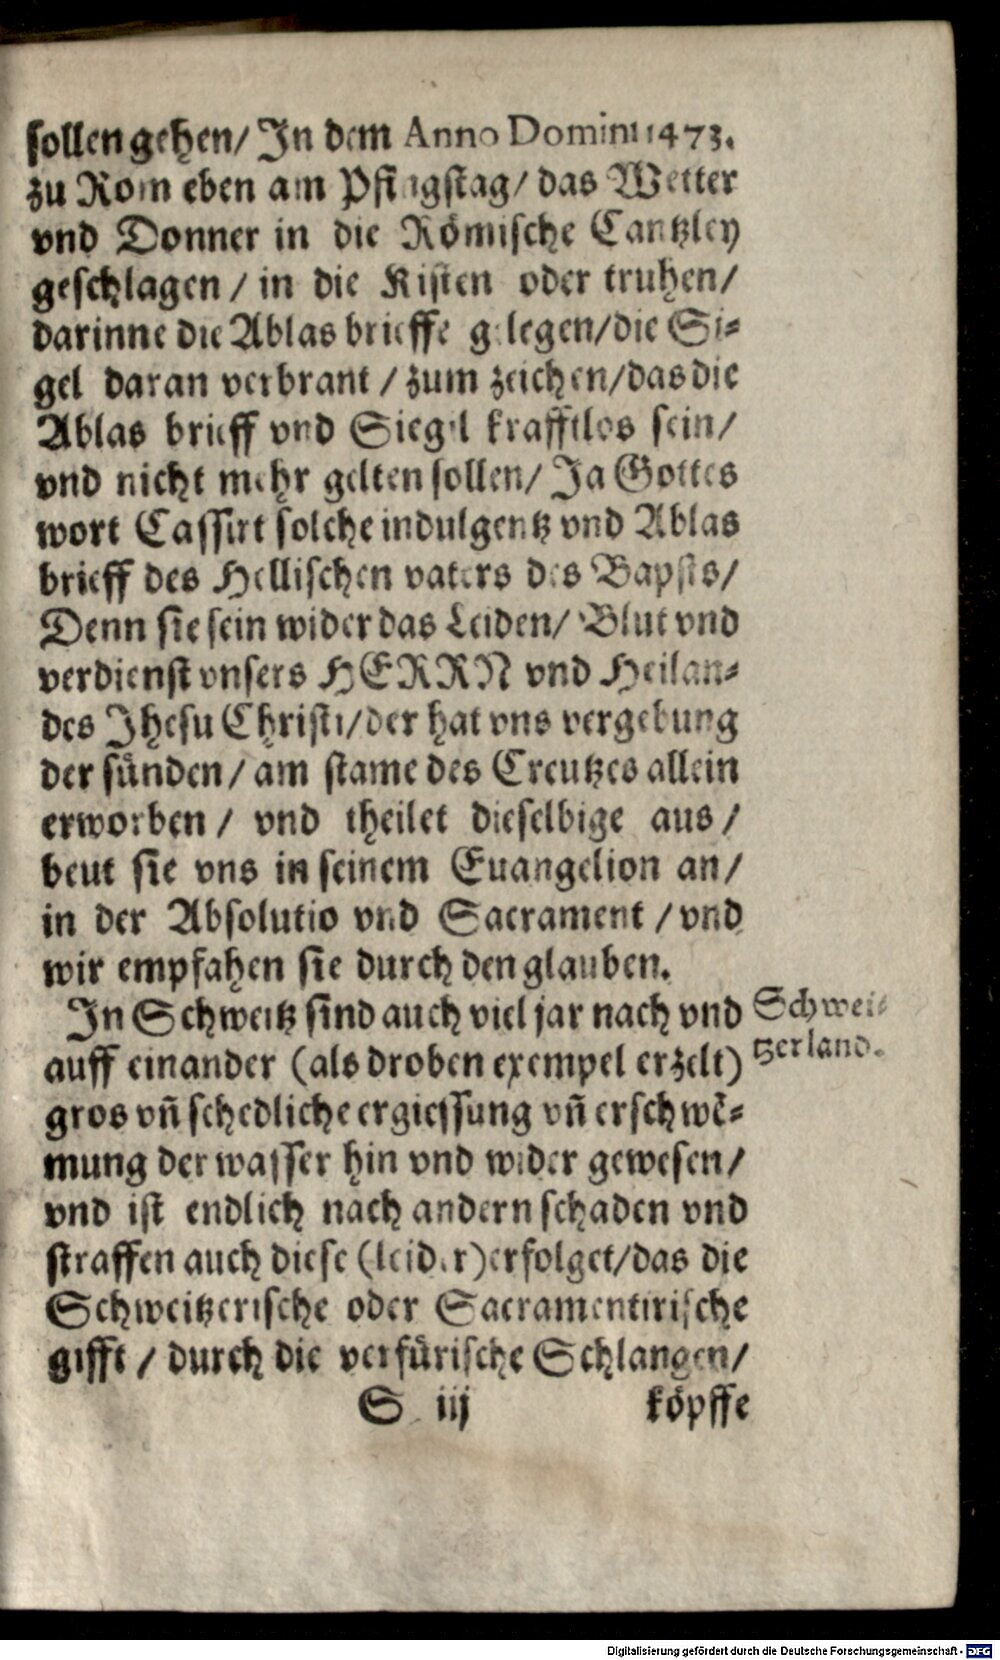 sollen gehen/ In dem Anno Domini 1473.
zu Rom eben am Pfingstag/ das Wetter
vnd Donner in die Römische Cantzley
geschlagen / in die Kisten oder truhen/
darinne die Ablas brieffe gelegen/die Si-
gel daran verbrant / zum zeichen/das die
Ablas brieff vnd Siegel krafftlos sein/
vnd nicht mehr gelten sollen/ Ja Gottes
wort Cassirt solche indulgentz vnd Ablas
brieff des Hellischen vaters des Bapsts/
Denn sie sein wider das Leiden/ Blut vnd
verdienst vnsers HERRN vnd Heilan-
des Jhesu Christi/der hat vns vergebung
der sünden/ am stame des Creutzes allein
erworben / vnd theilet dieselbige aus/
beut sie vns in seinem Euangelion an/
in der Absolutio vnd Sacrament / vnd
wir empfahen sie durch den glauben.
In Schweitz sind auch viel jar nach vnd
auff einander (als droben exempel erzelt)
gros vñ schedliche ergiessung vñ erschwẽ-
mung der wasser hin vnd wider gewesen/
vnd ist endlich nach andern schaden vnd
straffen auch diese (leider) erfolget/das die
Schweitzerische oder Sacramentirische
gifft / durch die verfürische Schlangen/
S iij köpffe
Schwei-
tzerland.
Digitalisierung gefördert durch die Deutsche Forschungsgemeinschaft - DFG